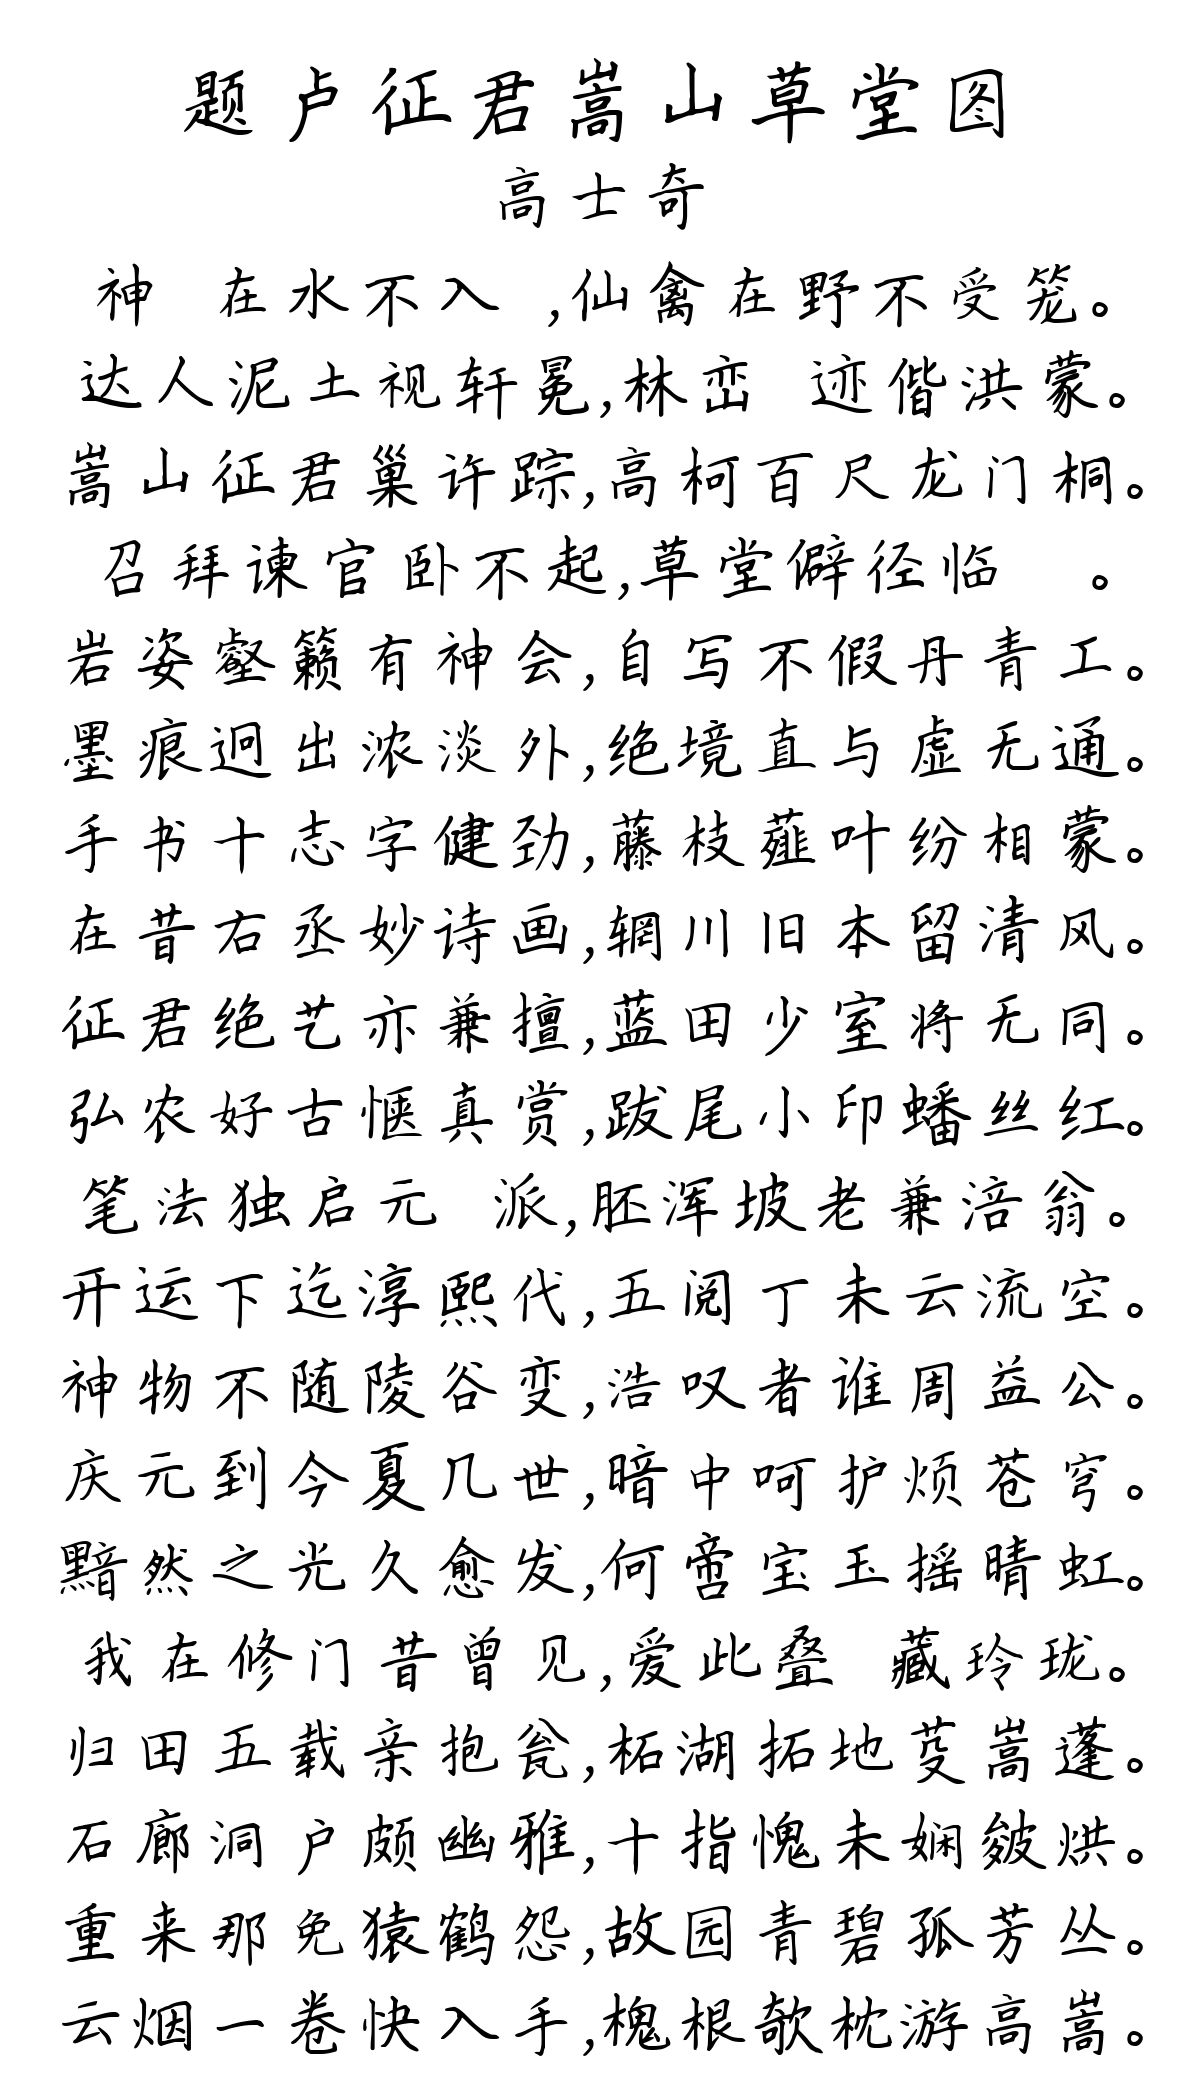 题卢征君嵩山草堂图
高士奇
神 在水不入 ,仙禽在野不受笼。
达人泥土视轩冕,林峦 迹偕洪蒙。
嵩山征君巢许踪,高柯百尺龙门桐。
召拜谏官卧不起,草堂僻径临 。
岩姿壑籁有神会,自写不假丹青工。
墨痕迥出浓淡外,绝境直与虚无通。
手书十志字健劲,藤枝薤叶纷相蒙。
在昔右丞妙诗画,辋川旧本留清风。
征君绝艺亦兼擅,蓝田少室将无同。
弘农好古惬真赏,跋尾小印蟠丝红。
笔法独启元 派,胚浑坡老兼涪翁。
开运下迄淳熙代,五阅丁未云流空。
神物不随陵谷变,浩叹者谁周益公。
庆元到今夏几世,暗中呵护烦苍穹。
黯然之光久愈发,何啻宝玉摇晴虹。
我在修门昔曾见,爱此叠 藏玲珑。
归田五载亲抱瓮,柘湖拓地芟嵩蓬。
石廊洞户颇幽雅,十指愧未娴皴烘。
重来那免猿鹤怨,故园青碧孤芳丛。
云烟一卷快入手,槐根欹枕游高嵩。